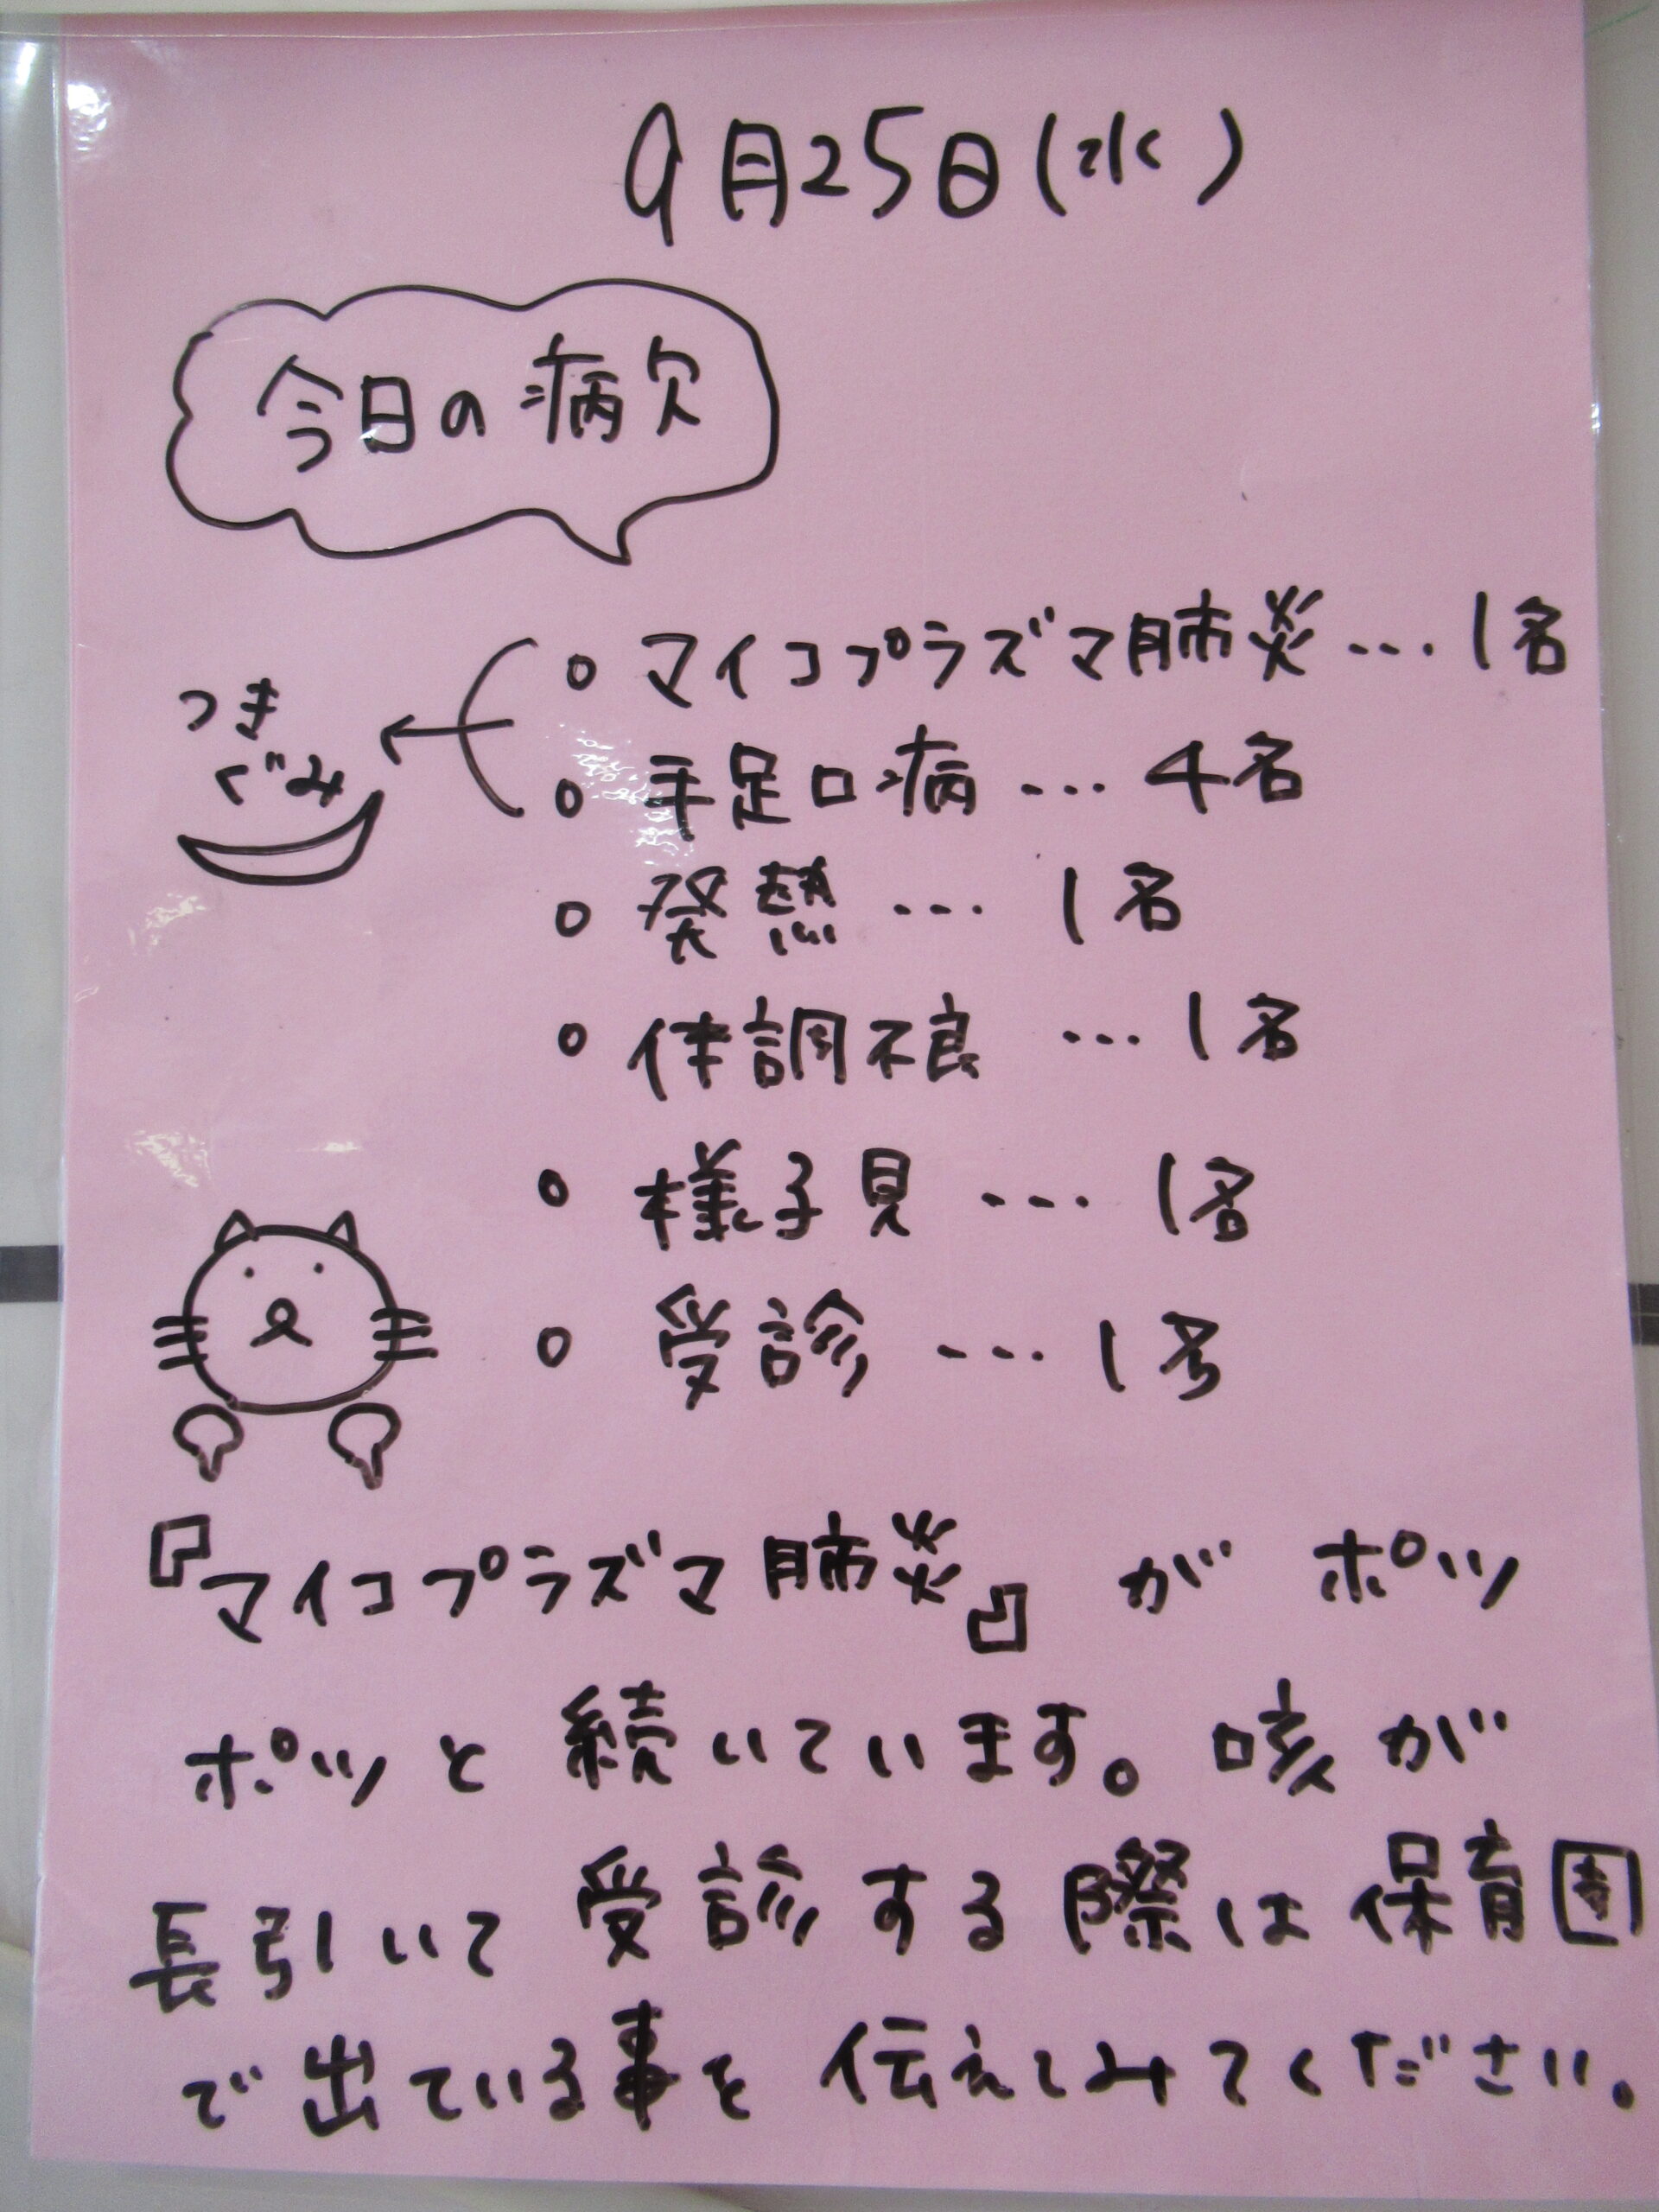 9月25日(水)
今日の病欠
つき
ぐみ
。マイコプラズマ肺炎…1名
。手足口病…4名
。発熱…1名
。体調不良…1名
。様子見…1名
。受診…1名
『マイコプラズマ肺炎』がポツ
ポツと続いています。咳が
長引いて受診する際は保育園
で出ている事を伝えてみてください。